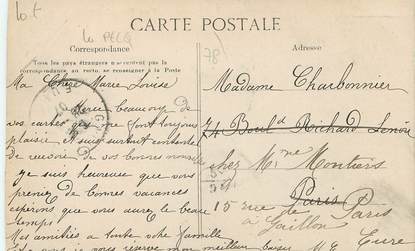 CARTE POSTALE
Le PECQ
78
Correspondance
Adresse
Tous les pays étrangers n'acceptent pas la
correspondance au verso, se renseigner à la Poste
Ma Chère Marie Louise
Merci beaucoup de
vos cartes qui me font toujours
plaisir et suis surtout contente
de recevoir de vos bonnes nouvelles
je suis heureuse que vous
prenez de bonnes vacances
espérons que vous aurez le beau
temps!
Mes amitiés à toute votre famille
je vous réserve mon meilleur baiser
Madame Charbonnier
74 Boul d Richard Lenoir
chez Mme
Paris
15 rue de Paris
à Gaillon
Eure